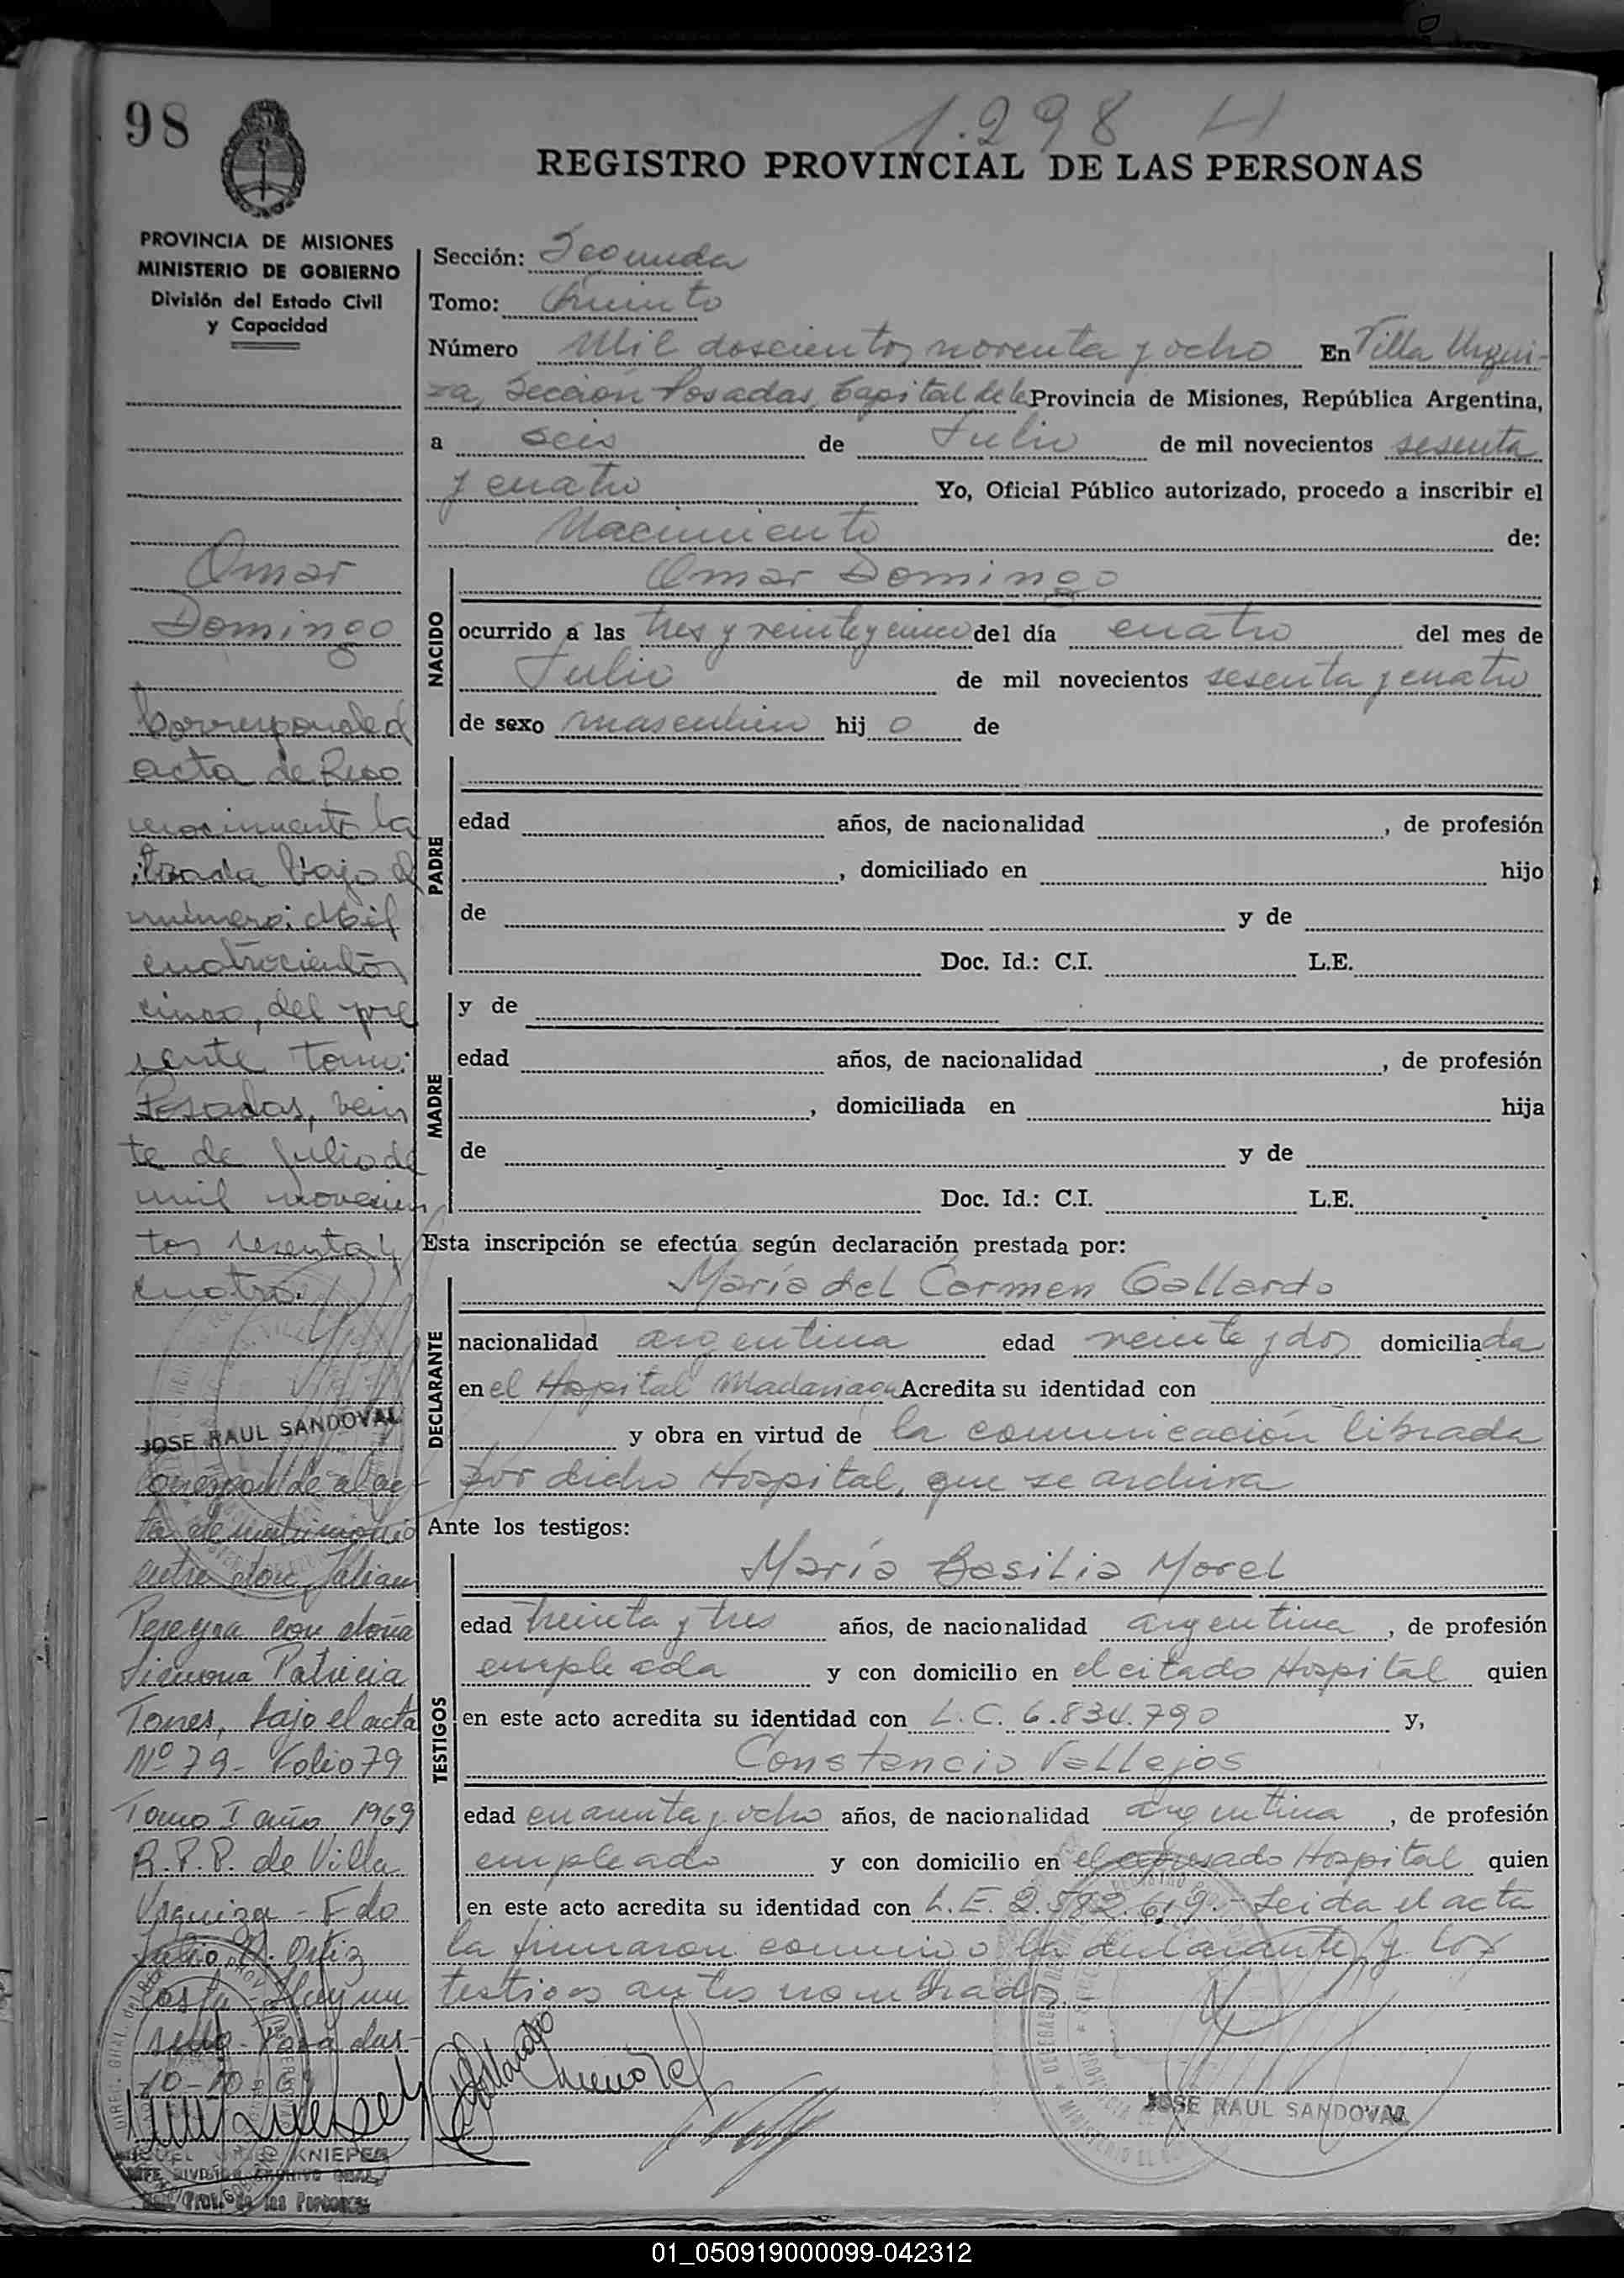 98
1.298 H
REGISTRO PROVINCIAL DE LAS PERSONAS
PROVINCIA DE MISIONES
MINISTERIO DE GOBIERNO
División del Estado Civil
y Capacidad
Omar
Domingo
Corresponde al
acta de Reco
nocimiento la
brada bajo el
número: Mil
cuatrocientos
cinco, del pre
sente tomo:
Posadas, vein
te de Julio de
mil novecien
tos sesenta y
cuatro.
JOSE RAUL SANDOVAL
Corresponde al ac
ta de matrimonio
entre don Julian
Pereyra con doña
Ramona Patricia
Torres, bajo el acta
Nº 79 - Folio 79
Tomo I año 1969
R.P.P. de Villa
Urquiza - Fdo
Julio Ortiz
Hay un
sello - Posadas -
KNIEPER
JEFE DIVISION ARCHIVO GRAL.
Prov. de las Personas
Sección: Segunda
Tomo: Quinto
Número Mil doscientos noventa y ocho En Villa Urqui-
za, Sección Posadas, Capital de la Provincia de Misiones, República Argentina,
a seis de Julio de mil novecientos sesenta
y cuatro Yo, Oficial Público autorizado, procedo a inscribir el
Nacimiento de:
NACIDO
Omar Domingo
ocurrido a las tres y veinte y cinco del día cuatro del mes de
Julio de mil novecientos sesenta y cuatro
de sexo masculino hij o de
PADRE
edad años, de nacionalidad , de profesión
, domiciliado en hijo
de y de
Doc. Id.: C.I. L.E.
MADRE
y de
edad años, de nacionalidad , de profesión
, domiciliada en hija
de y de
Doc. Id.: C.I. L.E.
Esta inscripción se efectúa según declaración prestada por:
DECLARANTE
María del Carmen Gallardo
nacionalidad argentina edad veinte y dos domiciliada
en el Hospital Madariaga Acredita su identidad con
y obra en virtud de la comunicación librada
por dicho Hospital, que se archiva
Ante los testigos:
TESTIGOS
María Basilia Morel
edad treinta y tres años, de nacionalidad argentina, de profesión
empleada y con domicilio en el citado Hospital quien
en este acto acredita su identidad con L.C. 6.834.790 y,
Constancio Vallejos
edad cuarenta y ocho años, de nacionalidad argentina, de profesión
empleado y con domicilio en el expresado Hospital quien
en este acto acredita su identidad con L.E. 2.582.619.- Leida el acta
la firmaron conmigo la declarante y los
testigos antes nombrados.
JOSE RAUL SANDOVAL
01_050919000099-042312